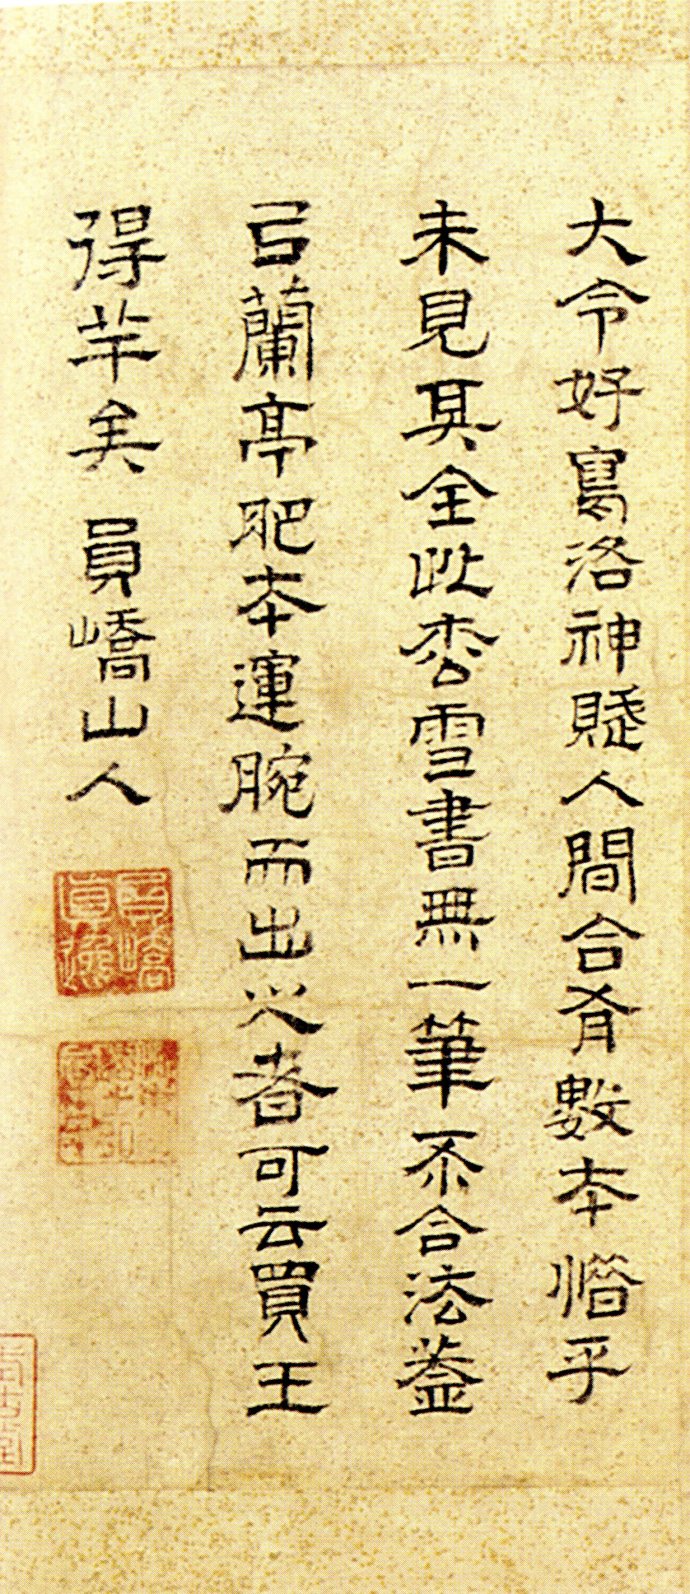 大令好寫洛神賦人間合有數本惜乎
未見其全此松雪書無一筆不合法蓋
㠯蘭亭肥本運腕而出之者可云買王
得羊矣 員嶠山人
員嶠真逸